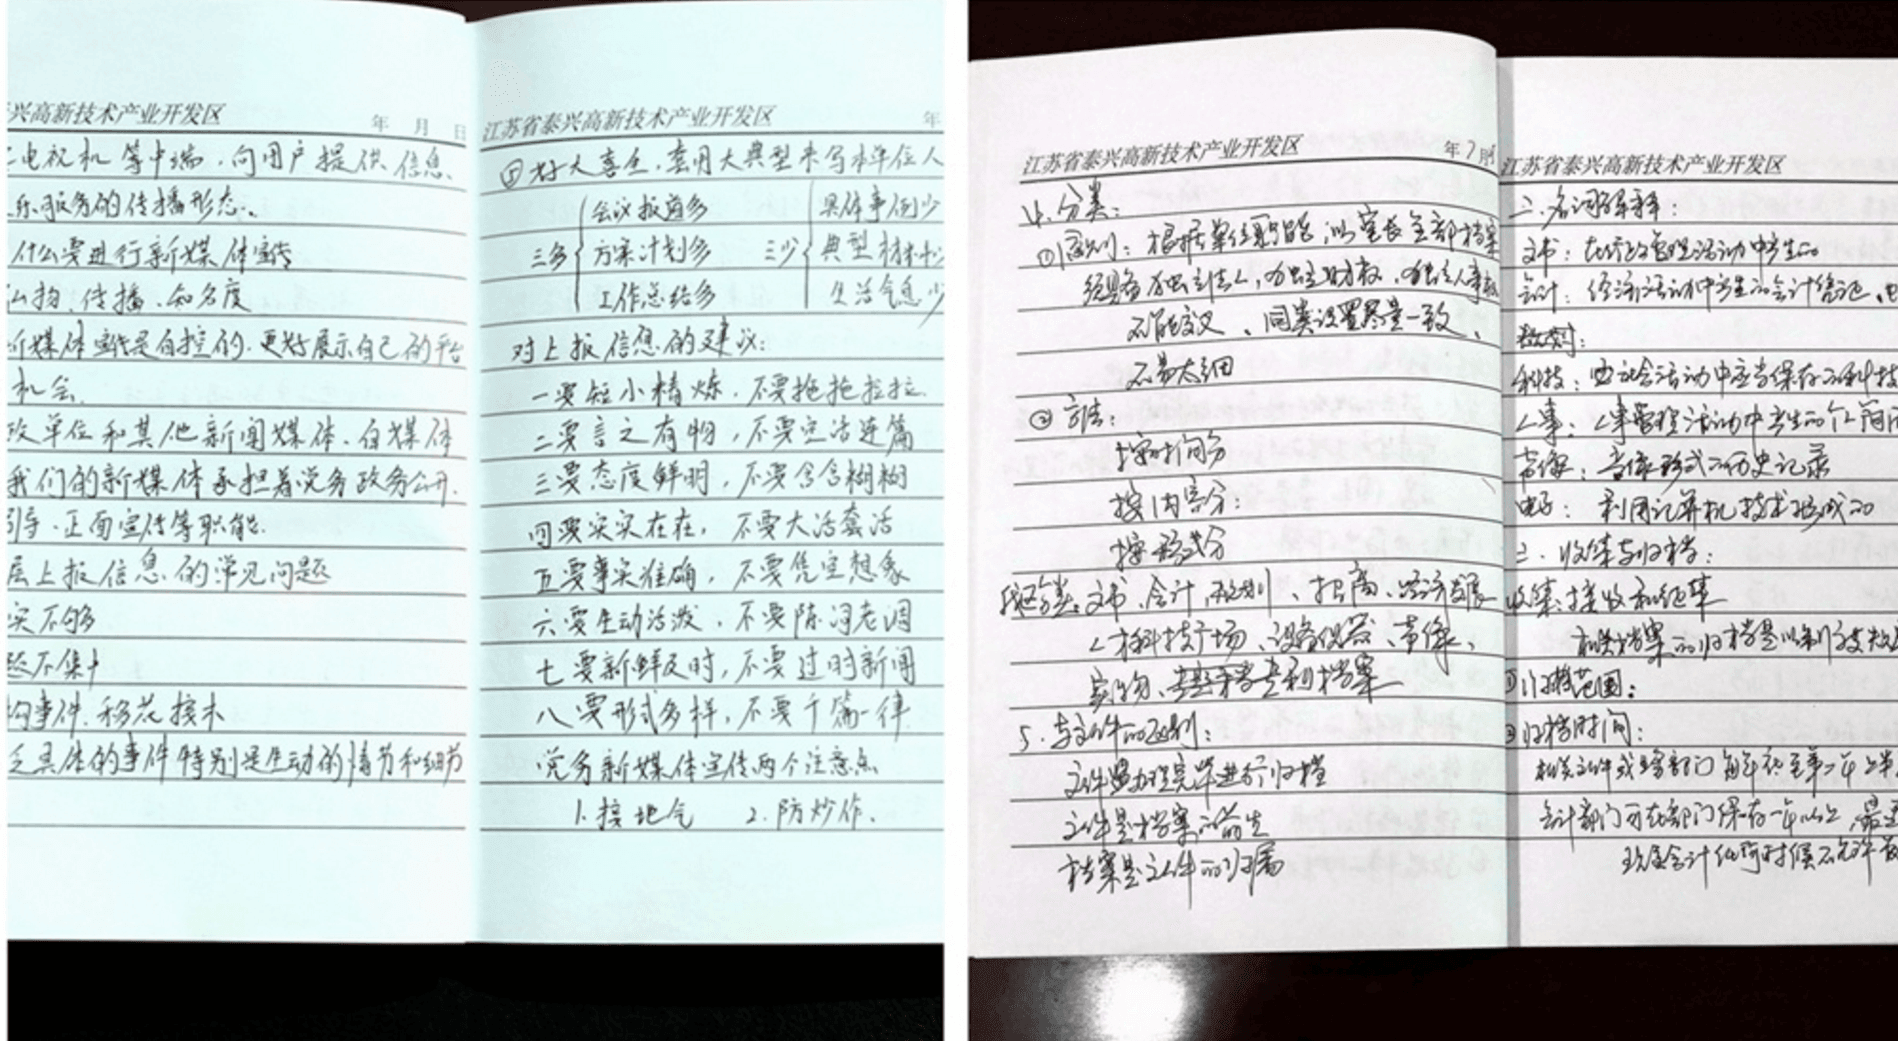 兴高新技术产业开发区 年 月 日
电视机等中端,向用户提供信息、
乐服务的传播形态、
什么要进行新媒体宣传
传播、知名度
新媒体宣传是自控的,更好展示自己的平台
机会、
政单位和其他新闻媒体、自媒体
我们的新媒体承担着党务政务公开、
引导、正面宣传等职能、
层上报信息的常见问题
实不够
题不集中
构事件、移花接木
乏具体的事件特别是生动的情节和细节
江苏省泰兴高新技术产业开发区 年
⑤好大喜全,套用大典型来写本单位人
会议报道多 具体事例少
三多 方案计划多 三少 典型材料少
工作总结多 生活气息少
对上报信息的建议:
一要短小精炼,不要拖拖拉拉、
二要言之有物,不要空话连篇
三要态度鲜明,不要含含糊糊
四要实实在在,不要大话套话
五要事实准确,不要凭空想象
六要生动活泼,不要陈词老调
七要新鲜及时,不要过时新闻
八要形式多样,不要千篇一律、
党务新媒体宣传两个注意点
1.接地气 2.防炒作、
江苏省泰兴高新技术产业开发区 年 7 月
4、分类:
①原则:根据单位职能,以 全部档案
须具备独立法人,独立财权,独立人事权
不能交叉、同类设置尽量一致、
不易太细
②方法:
按时间分
按内容分:
按形式分
我区分类:文书、会计、规划、招商、经济发展
人才科技广场、设备仪器、声像、
实物、 专利档案
5、与文件的区别:
文件要办理完毕进行归档
文件是档案的前生
档案是文件的归属
江苏省泰兴高新技术产业开发区
二、名词解释:
文书:在行政管理活动中产生的
会计:经济活动中产生的会计凭证、
规划:
科技: 社会活动中应当保存的科技
人事:人事管理活动中产生的个人
声像:声像形式的历史记录
电子:利用计算机技术形成的
三、收集与归档:
收集:接收和征集
相关档案的归档是以制度
①归档范围:
②归档时间:
相关文件或业务部门 每年 至第二年上半
会计部门可在部门保存一年以上,最